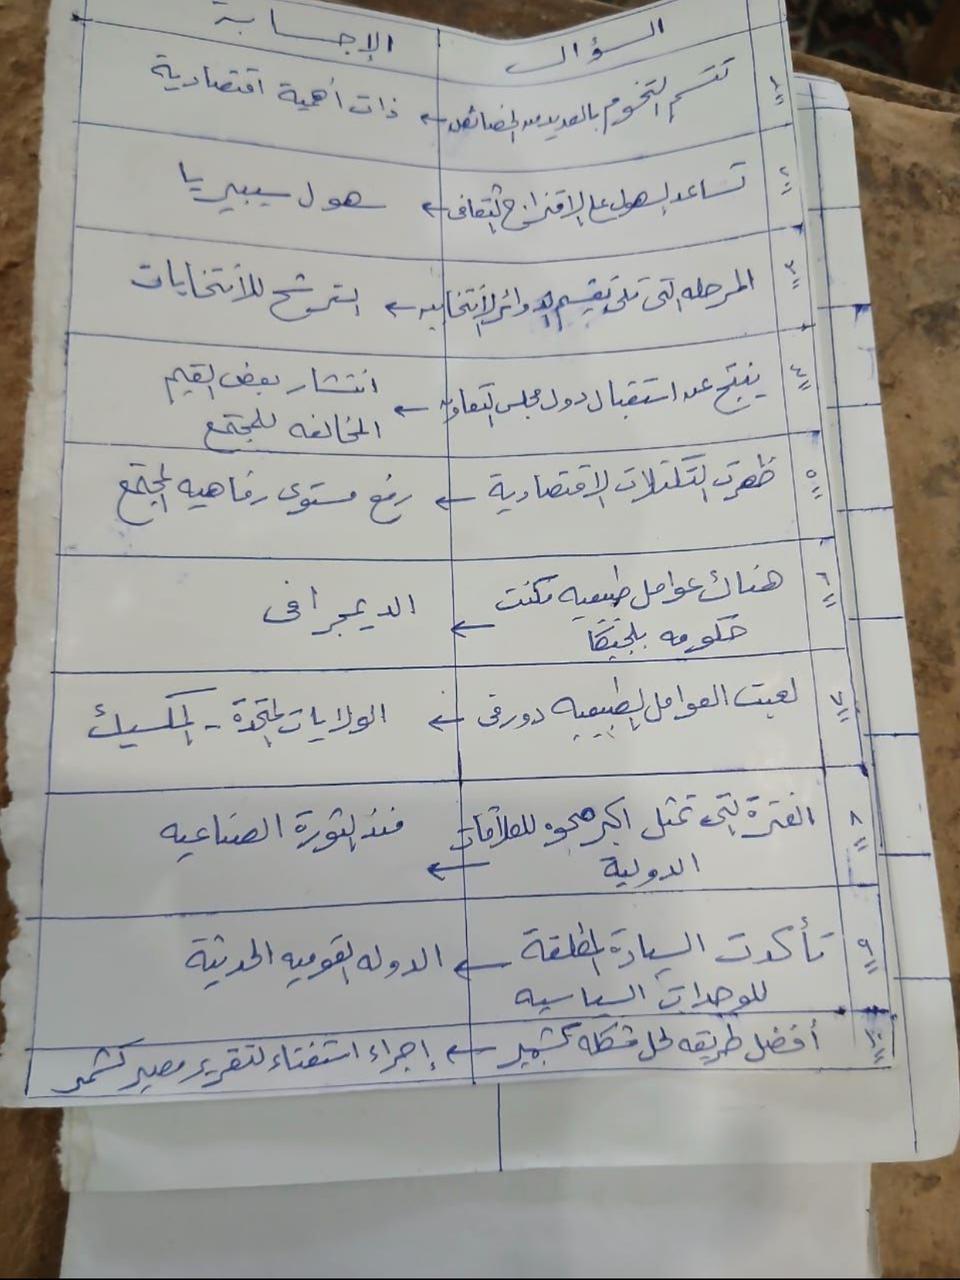 السؤال
الإجابة
١
تتسم التخوم بالعديد من الخصائص ← ذات أهمية اقتصادية
٢
تساعد السهول على الاقتراح الثقافى ← سهول سيبيريا
٣
المرحله التى تلى تقسيم الدوائر الأنتخابيه ← الترشح للأنتخابات
٤
ينتج عن استقبال دول مجلس التعاون ← انتشار بعض القيم
المخالفه للمجتمع
٥
ظهرت التكتلات الاقتصادية ← رفع مستوى رفاهيه المجتمع
٦
هناك عوامل طبيعيه مكنت
حكومه بلجيكا ← الديمجرافى
٧
لعبت العوامل الطبيعيه دور فى ← الولايات المتحدة - المكسيك
٨
الفترة التى تمثل اكبر للعلاقات
الدولية ← منذ الثورة الصناعيه
٩
تأكدت السيادة المطلقة
للوحدات السياسيه ← الدوله القوميه الحديثة
١٠
أفضل طريقه لحل مشكله كشمير ← إجراء استفتاء لتقرير مصير كشمير